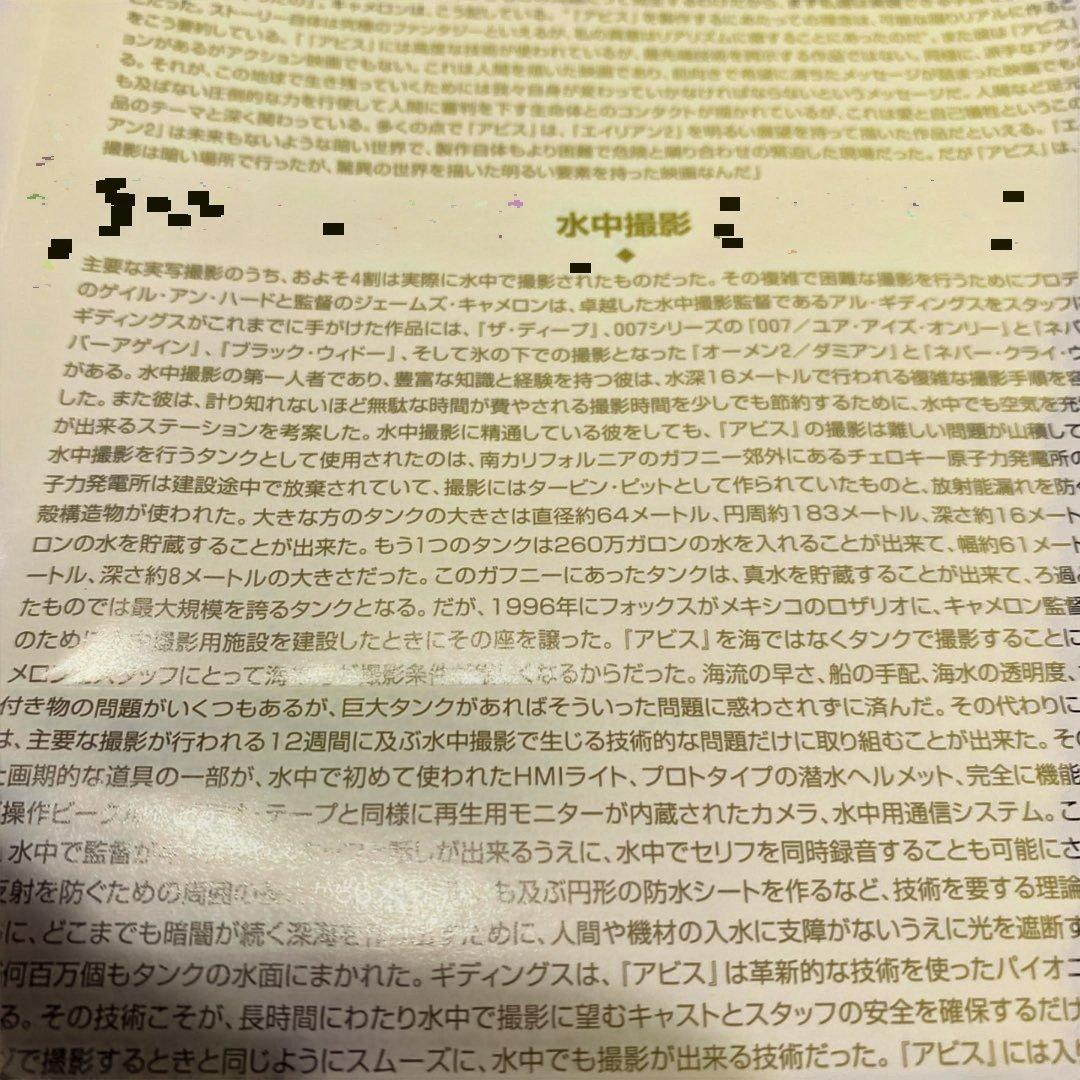 こう要約している。「『アビス』には高度な技術が使われているが、
ョンがあるがアクション映画でもない。これは人間を描いた映画であり、前向きで希望に満ちたメッセージが詰まった映画でも
る。それが、この地球で生き残っていくためには我々自身が変わっていかなければならないというメッセージだ。人間など足元
も及ばない圧倒的な力を行使して人間に審判を下す生命体とのコンタクトが描かれているが、これは愛と自己犠牲というこの
品のテーマと深く関わっている。多くの点で『アビス』は、『エイリアン2』を明るい願望を持って描いた作品だといえる。『エ
アン2』は未来もないような暗い世界で、製作自体もより困難で危険と隣り合わせの緊迫した現場だった。だが『アビス』は、
撮影は暗い場所で行ったが、驚異の世界を描いた明るい要素を持った映画なんだ」
水中撮影
主要な実写撮影のうち、およそ4割は実際に水中で撮影されたものだった。その複雑で困難な撮影を行うためにプロデ
のゲイル・アン・ハードと監督のジェームズ・キャメロンは、卓越した水中撮影監督であるアル・ギディングスをスタッフに
ギディングスがこれまでに手がけた作品には、『ザ・ディープ』、007シリーズの『007/ユア・アイズ・オンリー』と『ネバ
バーアゲイン』、『ブラック・ウィドー』、そして氷の下での撮影となった『オーメン2/ダミアン』と『ネバー・クライ・ウ
がある。水中撮影の第一人者であり、豊富な知識と経験を持つ彼は、水深16メートルで行われる複雑な撮影手順を容
した。また彼は、計り知れないほど無駄な時間が費やされる撮影時間を少しでも節約するために、水中でも空気を充
が出来るステーションを考案した。水中撮影に精通している彼をしても、『アビス』の撮影は難しい問題が山積して
水中撮影を行うタンクとして使用されたのは、南カリフォルニアのガフニー郊外にあるチェロキー原子力発電所の
子力発電所は建設途中で放棄されていて、撮影にはタービン・ピットとして作られていたものと、放射能漏れを防ぐ
殻構造物が使われた。大きな方のタンクの大きさは直径約64メートル、円周約183メートル、深さ約16メート
ロンの水を貯蔵することが出来た。もう1つのタンクは260万ガロンの水を入れることが出来て、幅約61メート
ートル、深さ約8メートルの大きさだった。このガフニーにあったタンクは、真水を貯蔵することが出来て、ろ過
たものでは最大規模を誇るタンクとなる。だが、1996年にフォックスがメキシコのロザリオに、キャメロン監督
のために 撮影用施設を建設したときにその座を譲った。『アビス』を海ではなくタンクで撮影することに
メロン スタッフにとって海 撮影条件が なるからだった。海流の早さ、船の手配、海水の透明度、
付き物の問題がいくつもあるが、巨大タンクがあればそういった問題に惑わされずに済んだ。その代わりに
は、主要な撮影が行われる12週間に及ぶ水中撮影で生じる技術的な問題だけに取り組むことが出来た。その
画期的な道具の一部が、水中で初めて使われたHMIライト、プロトタイプの潜水ヘルメット、完全に機能
操作ビー テープと同様に再生用モニターが内蔵されたカメラ、水中用通信システム。こ
水中で監督が 話しが出来るうえに、水中でセリフを同時録音することも可能にさ
反射を防ぐための周囲 も及ぶ円形の防水シートを作るなど、技術を要する理論
に、どこまでも暗闇が続く深海を ために、人間や機材の入水に支障がないうえに光を遮断す
何百万個もタンクの水面にまかれた。ギディングスは、『アビス』は革新的な技術を使ったパイオニ
る。その技術こそが、長時間にわたり水中で撮影に望むキャストとスタッフの安全を確保するだけ
で撮影するときと同じようにスムーズに、水中でも撮影が出来る技術だった。『アビス』には入